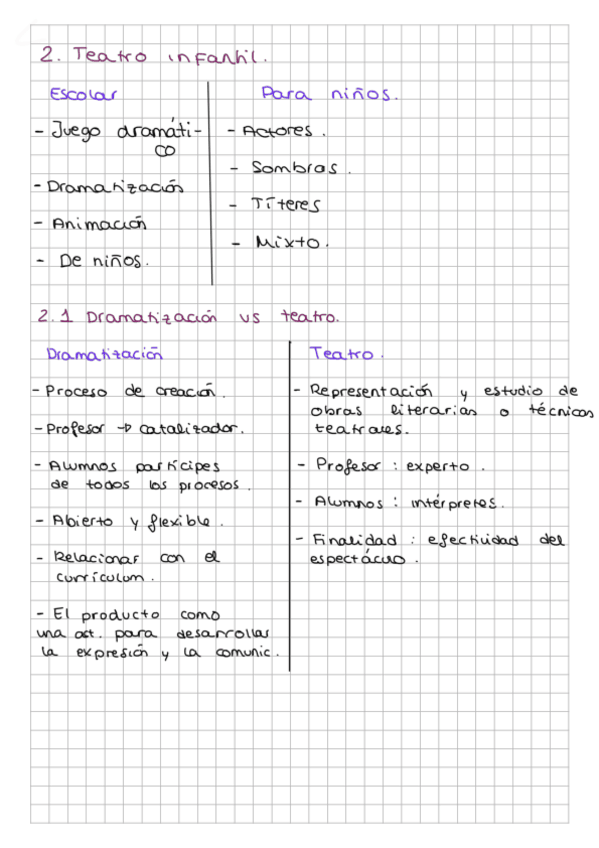 2. Teatro infantil.
Escolar
- Juego dramáti-
co
- Dramatización
- Animación
- De niños.
Para niños.
- Actores.
- Sombras.
- Títeres
- Mixto.
2.1 Dramatización vs teatro.
Dramatización
- Proceso de creación.
- Profesor → catalizador.
- Alumnos partícipes
de todos los procesos.
- Abierto y flexible.
- Relacionar con el
currículum.
- El producto como
una act. para desarrollar
la expresión y la comunic.
Teatro.
- Representación y estudio de
obras literarias o técnicas
teatrales.
- Profesor : experto.
- Alumnos : intérpretes.
- Finalidad : efectividad del
espectáculo.